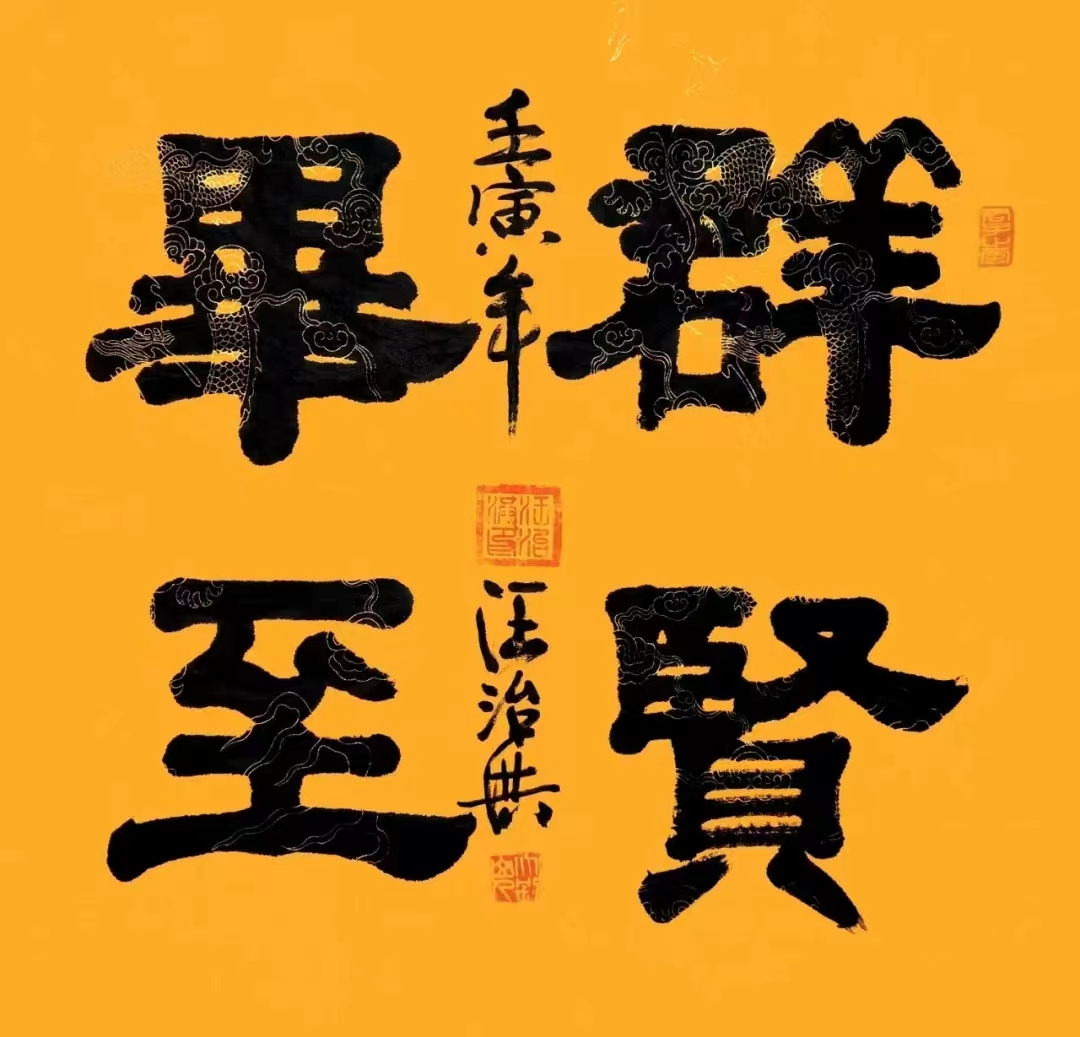 群賢
畢至
壬寅年
汪治典